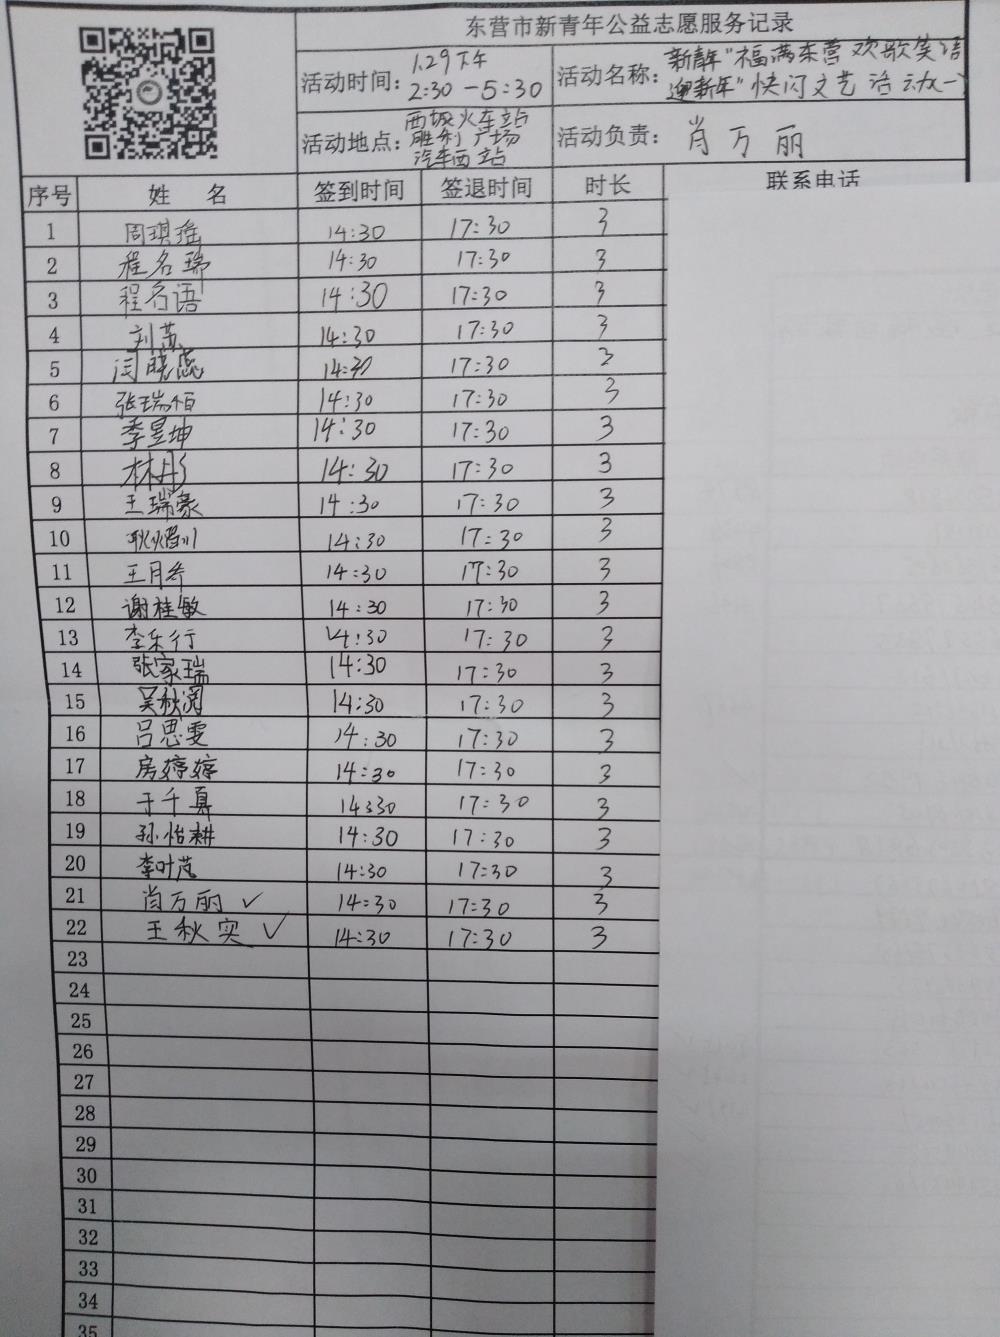 东营市新青年公益志愿服务记录
活动时间：1.29下午 2:30-5:30
活动名称：新青年"福满东营 欢歌笑语 迎新年"快闪文艺活动(一)
活动地点：西城火车站 胜利广场 汽车西站
活动负责：肖万丽
序号 姓名 签到时间 签退时间 时长 联系电话
1 周琪瑶 14:30 17:30 3
2 程名瑞 14:30 17:30 3
3 程名语 14:30 17:30 3
4 刘苏 14:30 17:30 3
5 闫晓蕊 14:30 17:30 3
6 张瑞恒 14:30 17:30 3
7 季昱坤 14:30 17:30 3
8 林彤 14:30 17:30 3
9 王瑞豪 14:30 17:30 3
10 耿熠川 14:30 17:30 3
11 王月 14:30 17:30 3
12 谢桂敏 14:30 17:30 3
13 李东行 14:30 17:30 3
14 张家瑞 14:30 17:30 3
15 吴秋阅 14:30 17:30 3
16 吕思雯 14:30 17:30 3
17 房婷婷 14:30 17:30 3
18 于千 14:30 17:30 3
19 孙怡耕 14:30 17:30 3
20 李叶芃 14:30 17:30 3
21 肖万丽 ✓ 14:30 17:30 3
22 王秋实 ✓ 14:30 17:30 3
23
24
25
26
27
28
29
30
31
32
33
34
35